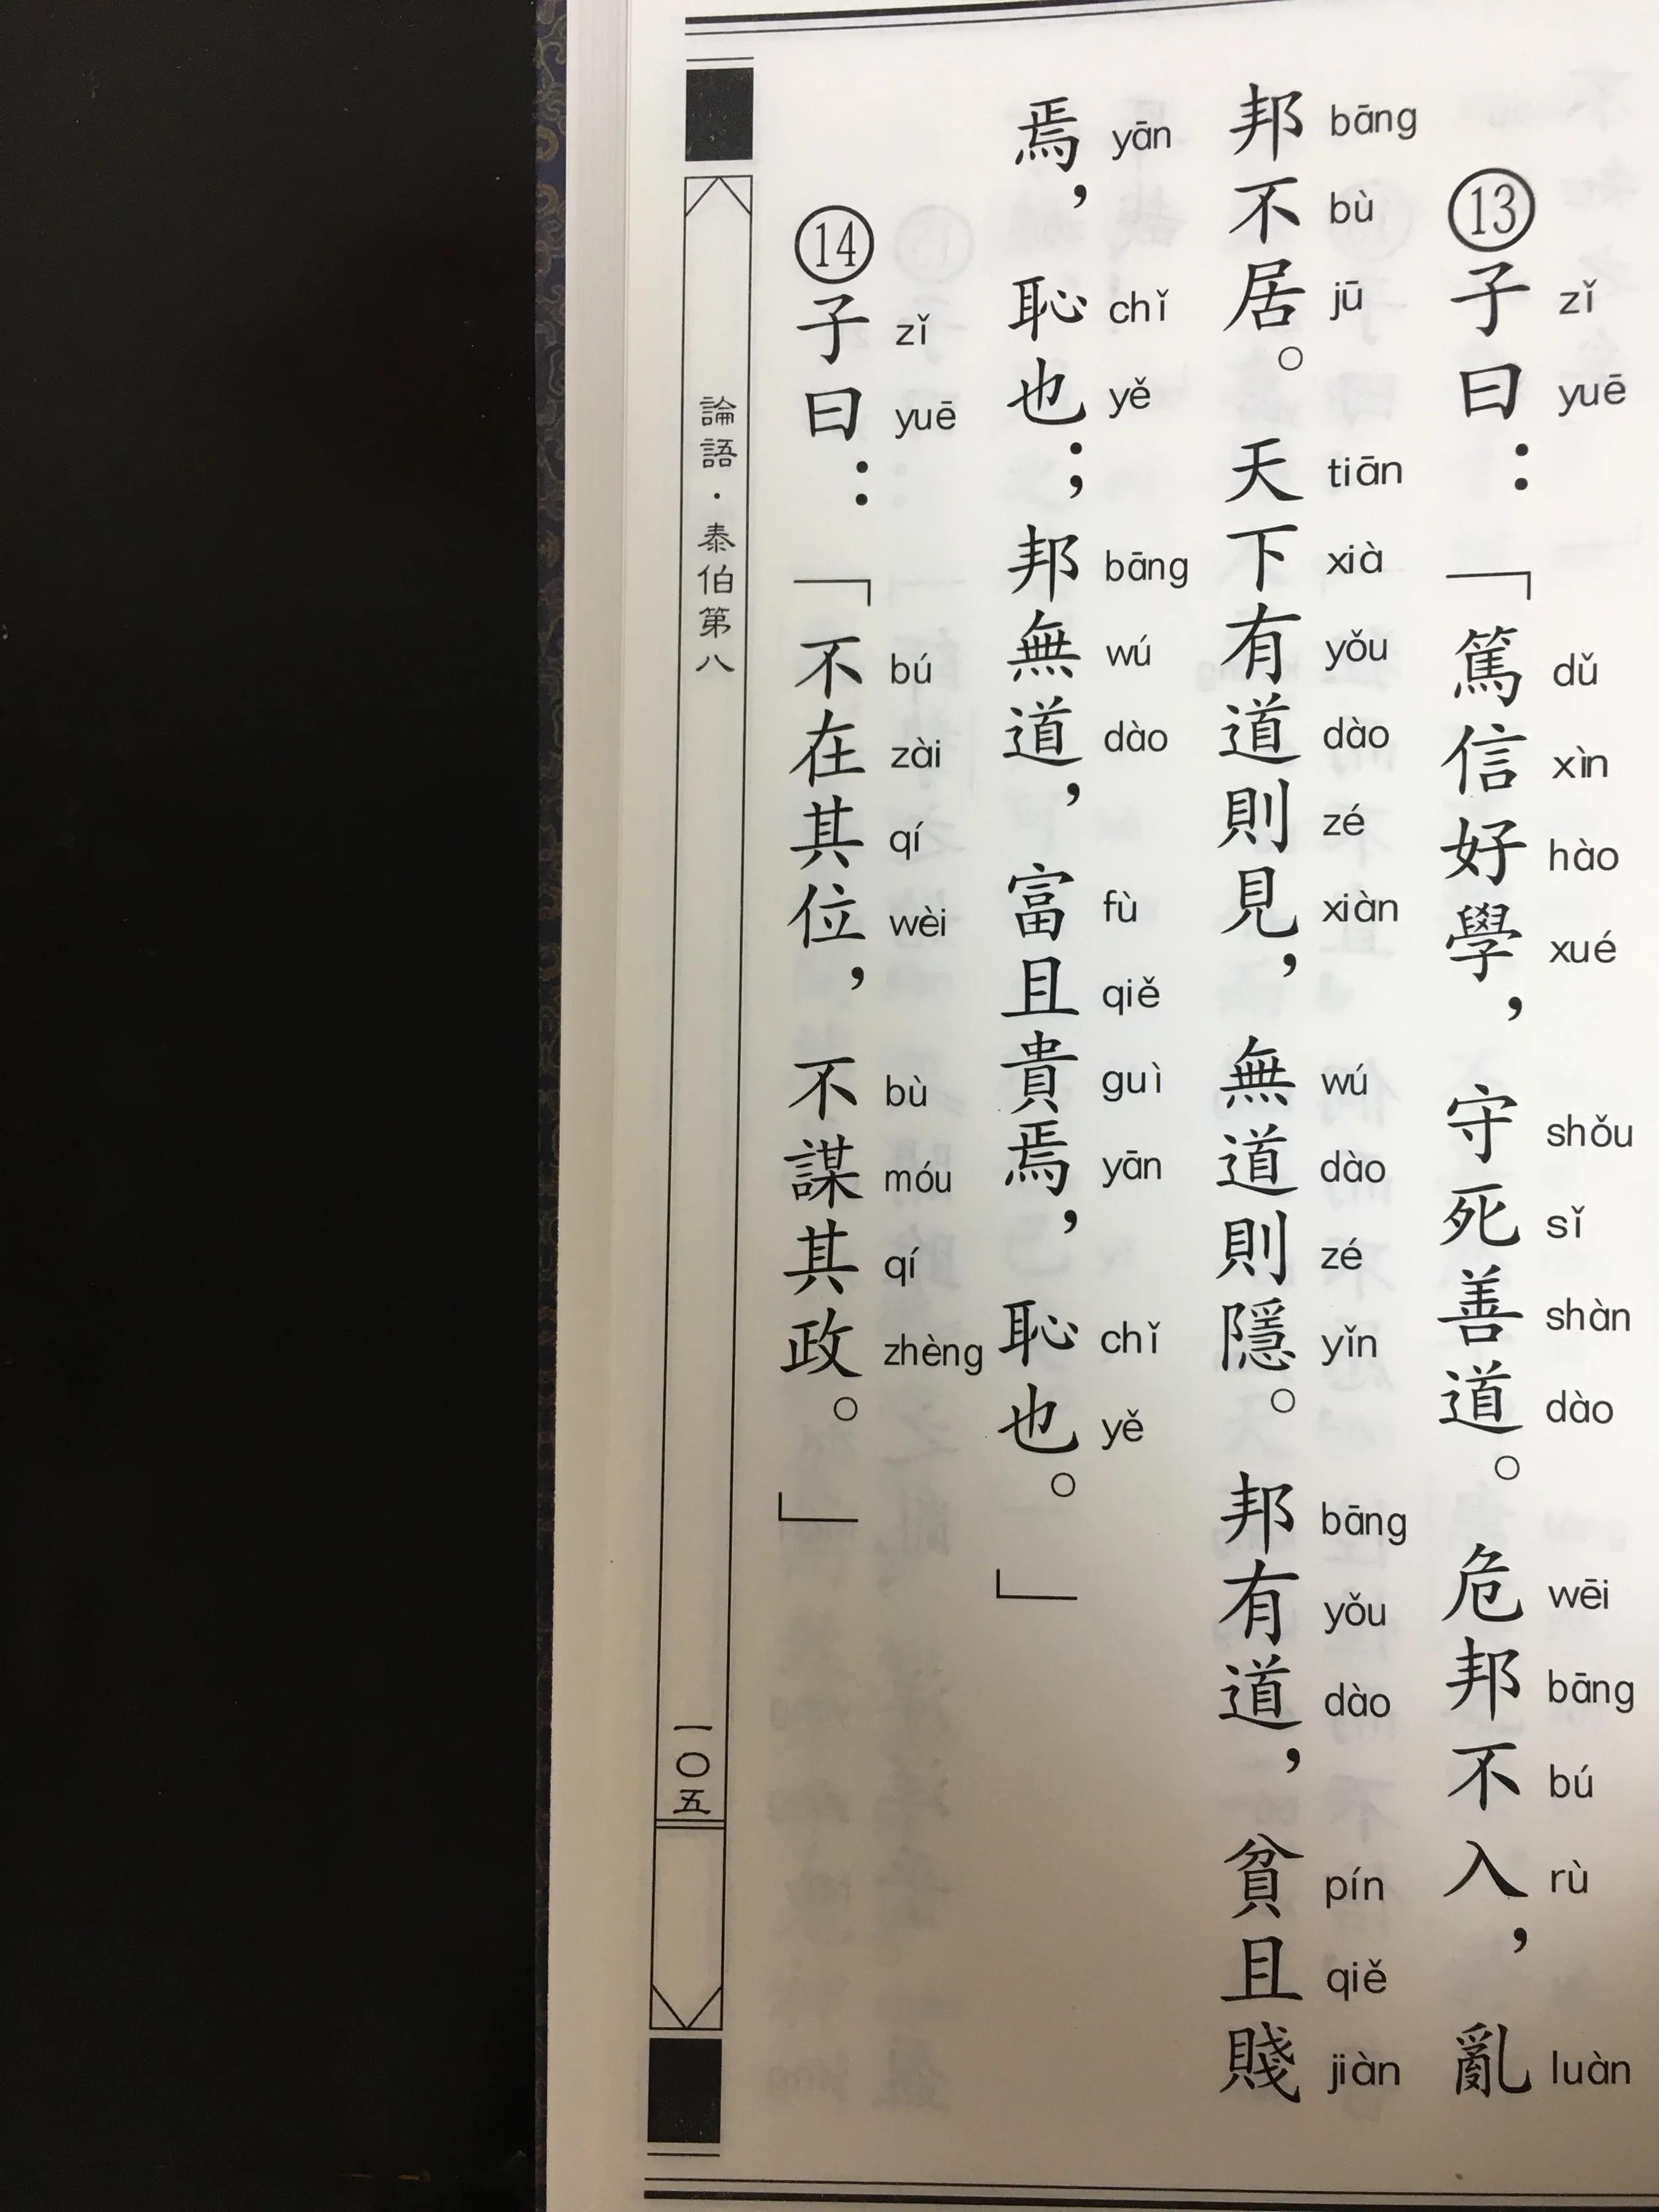 ⑬子曰：「篤信好學，守死善道。危邦不入，亂
zǐ yuē dǔ xìn hào xué shǒu sǐ shàn dào wēi bāng bú rù luàn
邦不居。天下有道則見，無道則隱。邦有道，貧且賤
bāng bù jū tiān xià yǒu dào zé xiàn wú dào zé yǐn bāng yǒu dào pín qiě jiàn
焉，恥也；邦無道，富且貴焉，恥也。」
yān chǐ yě bāng wú dào fù qiě guì yān chǐ yě
⑭子曰：「不在其位，不謀其政。」
zǐ yuē bú zài qí wèi bù móu qí zhèng
論語·泰伯第八
一〇五